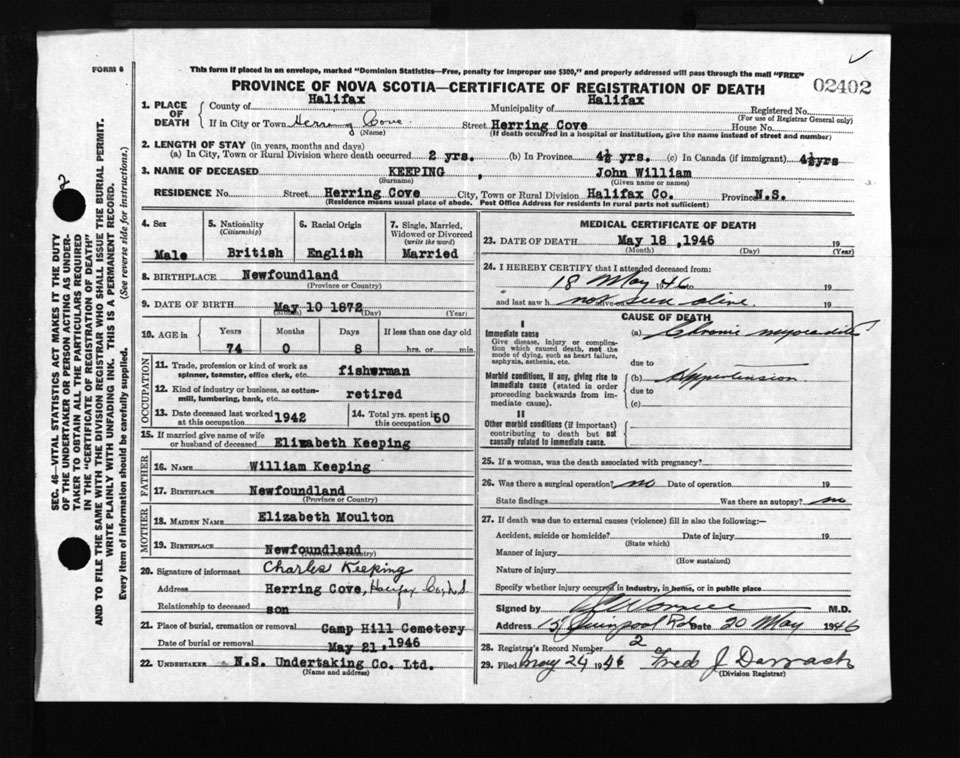 FORM 6
This form if placed in an envelope, marked "Dominion Statistics—Free, penalty for improper use $300," and properly addressed will pass through the mail "FREE"
PROVINCE OF NOVA SCOTIA—CERTIFICATE OF REGISTRATION OF DEATH
02402
1. PLACE OF DEATH
County of Halifax Municipality of Halifax Registered No.
(For use of Registrar General only)
If in City or Town Herring Cove Street Herring Cove House No.
(Name) (If death occurred in a hospital or institution, give the name instead of street and number)
2. LENGTH OF STAY (in years, months and days)
(a) In City, Town or Rural Division where death occurred 2 yrs. (b) In Province 4½ yrs. (c) In Canada (if immigrant) 4½yrs
3. NAME OF DECEASED KEEPING, John William
(Surname) (Given name or names)
RESIDENCE No. Street Herring Cove City, Town or Rural Division Halifax Co. Province N.S.
(Residence means usual place of abode. Post Office Address for residents in rural parts not sufficient)
4. Sex
Male
5. Nationality
(Citizenship)
British
6. Racial Origin
English
7. Single, Married, Widowed or Divorced
(write the word)
Married
8. BIRTHPLACE Newfoundland
(Province or Country)
9. DATE OF BIRTH May 10 1872
(Month) (Day) (Year)
10. AGE in Years Months Days If less than one day old
74 0 8 hrs. or min.
OCCUPATION
11. Trade, profession or kind of work as spinner, teamster, office clerk, etc. fisherman
12. Kind of industry or business, as cotton-mill, lumbering, bank, etc. retired
13. Date deceased last worked at this occupation 1942
14. Total yrs. spent in this occupation 50
15. If married give name of wife or husband of deceased Elizabeth Keeping
FATHER
16. NAME William Keeping
17. BIRTHPLACE Newfoundland
(Province or Country)
MOTHER
18. MAIDEN NAME Elizabeth Moulton
19. BIRTHPLACE Newfoundland
(Province or Country)
20. Signature of informant Charles Keeping
Address Herring Cove, Halifax Co, N.S.
Relationship to deceased son
21. Place of burial, cremation or removal Camp Hill Cemetery
Date of burial or removal May 21, 1946
22. UNDERTAKER N.S. Undertaking Co. Ltd.
(Name and address)
MEDICAL CERTIFICATE OF DEATH
23. DATE OF DEATH May 18, 1946 19
(Month) (Day) (Year)
24. I HEREBY CERTIFY that I attended deceased from:
18 May 1946 to 19
and last saw h alive on not seen alive. 19
CAUSE OF DEATH
I
Immediate cause
Give disease, injury or complication which caused death, not the mode of dying, such as heart failure, asphyxia, asthenia, etc.
(a) Chronic myocarditis
due to
Morbid conditions, if any, giving rise to immediate cause (stated in order proceeding backwards from immediate cause).
(b) Hypertension
due to
(c)
II
Other morbid conditions (if important) contributing to death but not causally related to immediate cause.
25. If a woman, was the death associated with pregnancy?
26. Was there a surgical operation? no Date of operation 19
State findings Was there an autopsy? no
27. If death was due to external causes (violence) fill in also the following:—
Accident, suicide or homicide? Date of injury 19
(State which)
Manner of injury
(How sustained)
Nature of injury
Specify whether injury occurred in industry, in home, or in public place
Signed by M.D.
Address Quinpool Rd Date 20 May 1946
28. Registrar's Record Number 2
29. Filed May 24 1946 Fred J Darrach
(Division Registrar)
SEC. 46—VITAL STATISTICS ACT MAKES IT THE DUTY
OF THE UNDERTAKER OR PERSON ACTING AS UNDER-
TAKER TO OBTAIN ALL THE PARTICULARS REQUIRED
IN THE "CERTIFICATE OF REGISTRATION OF DEATH"
AND TO FILE THE SAME WITH THE DIVISION REGISTRAR WHO SHALL ISSUE THE BURIAL PERMIT.
WRITE PLAINLY WITH UNFADING INK. THIS IS A PERMANENT RECORD.
Every item of information should be carefully supplied. (See reverse side for instructions.)
2